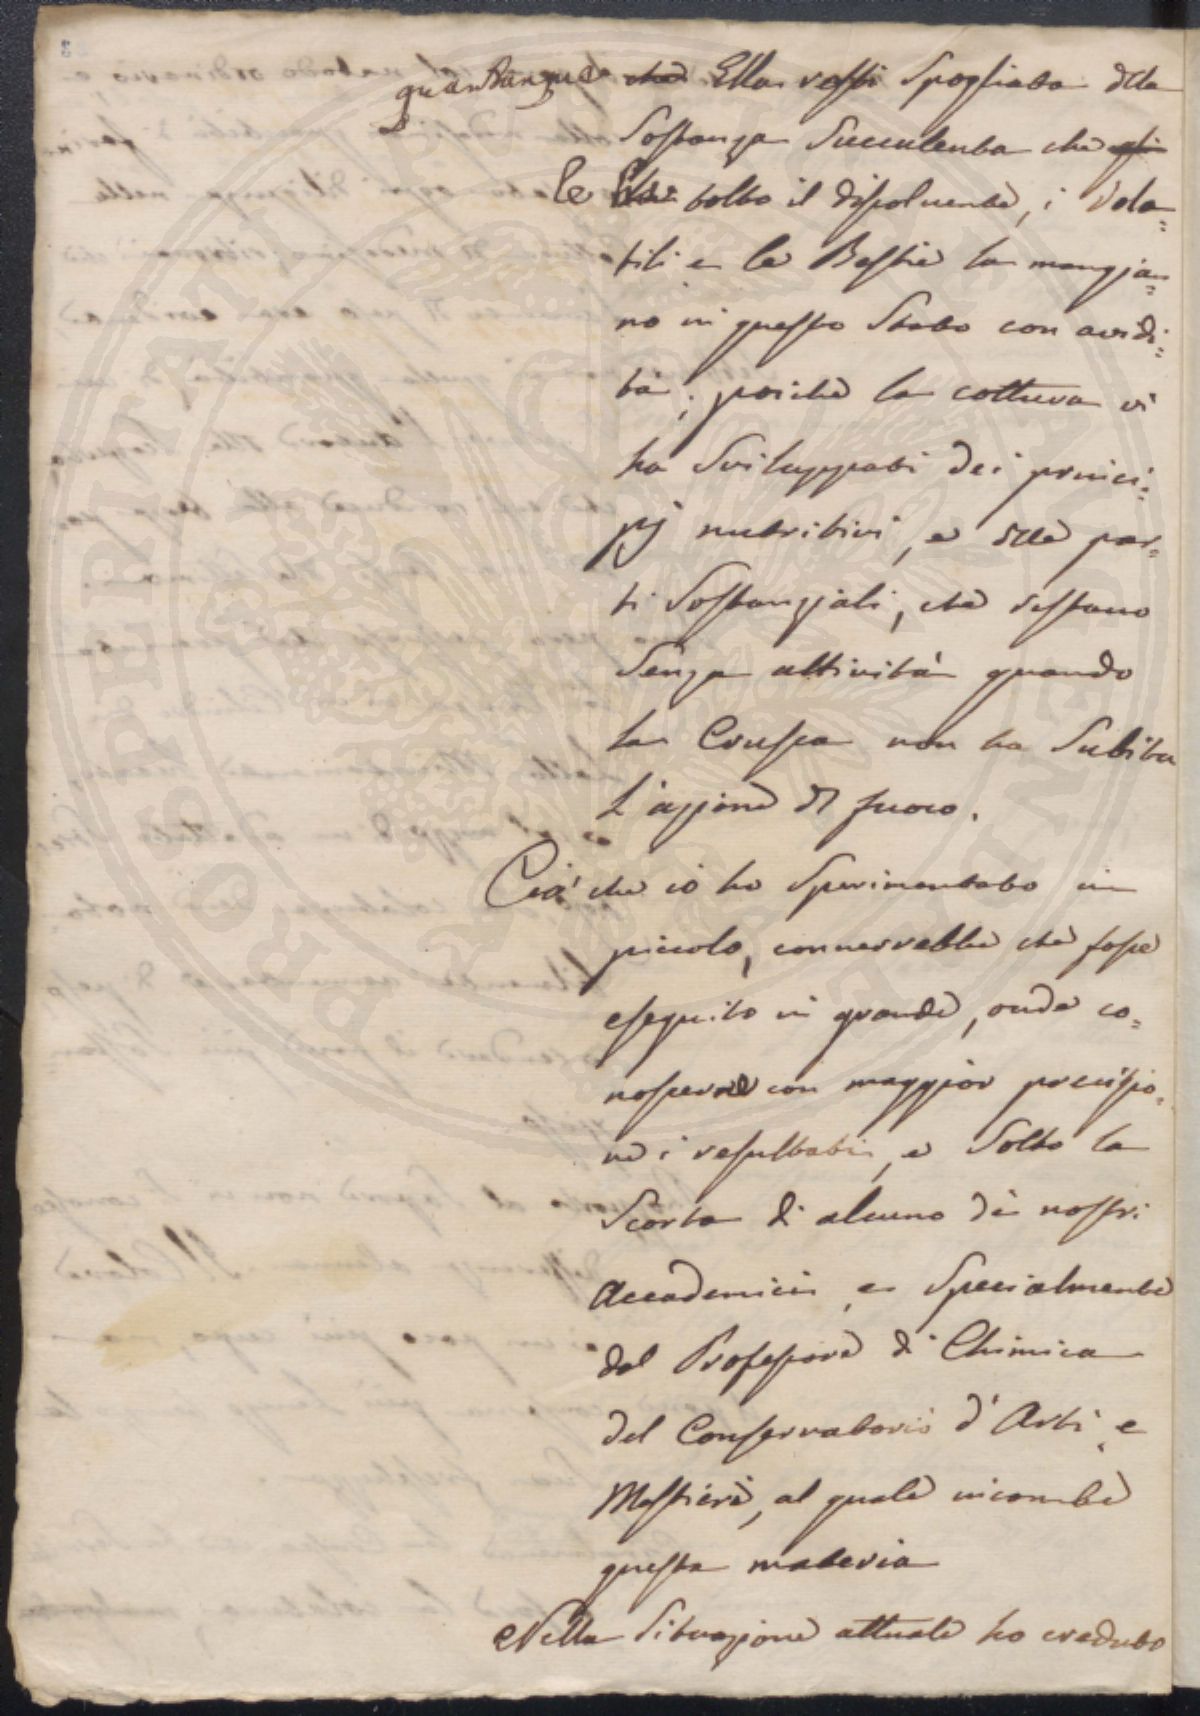 quantunque che Ella resti Spogliata della
Sostanza Succulenta che gli
le tolto il dissolvente, i Vola=
tili e le Bestie la mangia=
no in questo Stato con avidi=
tà; poichè la cottura vi
ha Sviluppati dei princi=
pj nutritivi, e delle par=
ti Sostanziali, che restano
Senza attività quando
la Crusca non ha Subita
l'azione del fuoco.
Ciò che io ho Sperimentato in
piccolo, converrebbe che fosse
eseguito in grande, onde co=
noscere con maggior precisio=
ne i resultati, e Sotto la
Scorta di alcuno dè nostri
Accademici e Specialmente
del Professore di Chimica
del Conservatorio d'Arti, e
Mestieri, al quale incombe
questa materia
Nella Situazione attuale ho creduto
PROSPERITATI PUBLICAE AUGENDAE